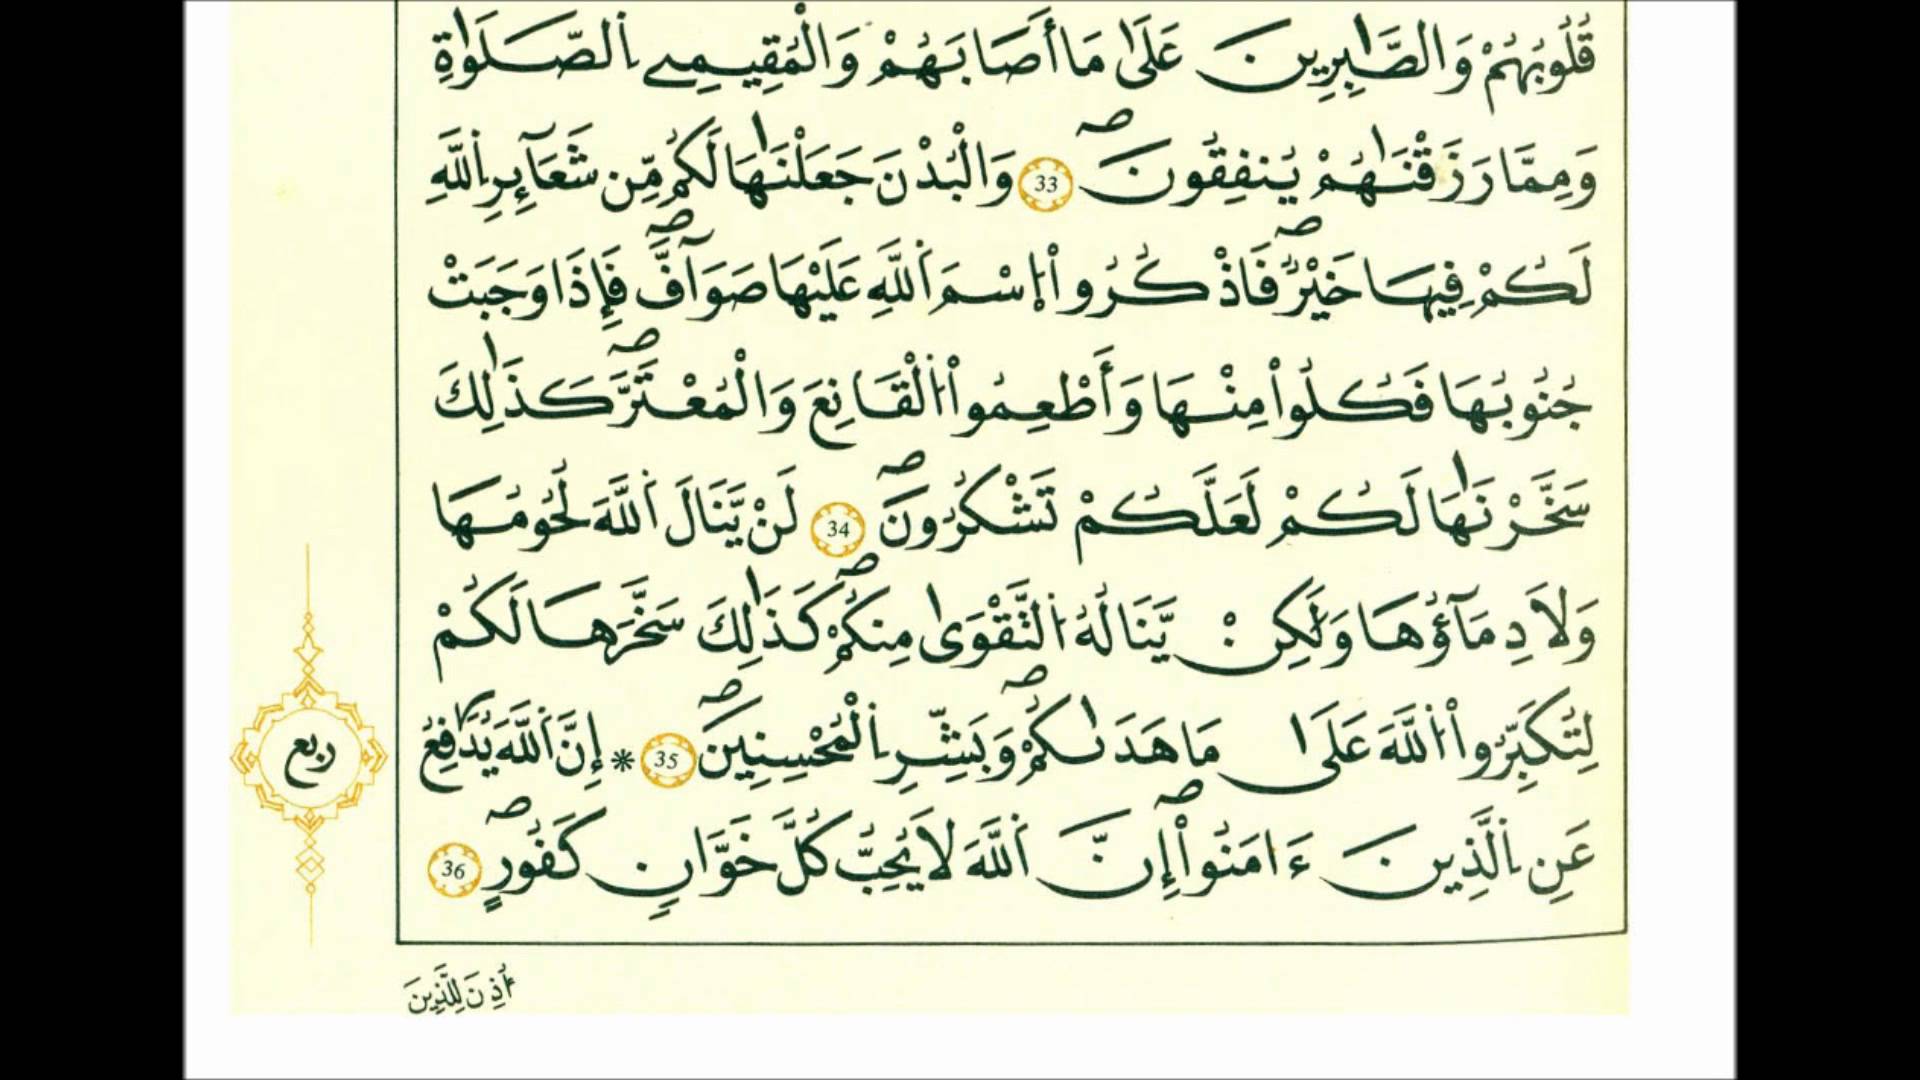 قُلُوبُهُمْ وَالصَّٰبِرِينَ عَلَىٰ مَا أَصَابَهُمْ وَالْمُقِيمِے اِ۬لصَّلَوٰةِ
وَمِمَّا رَزَقْنَٰهُمْ يُنفِقُونَۖ 33 وَالْبُدْنَ جَعَلْنَٰهَا لَكُم مِّن شَعَآئِرِ اِ۬للَّهِ
لَكُمْ فِيهَا خَيْرٌۖ فَاذْكُرُواْ اُ۪سْمَ اَ۬للَّهِ عَلَيْهَا صَوَآفَّۖ فَإِذَا وَجَبَتْ
جُنُوبُهَا فَكُلُواْ مِنْهَا وَأَطْعِمُواْ اُ۬لْقَانِعَ وَالْمُعْتَرَّۖ كَذَٰلِكَ
سَخَّرْنَٰهَا لَكُمْ لَعَلَّكُمْ تَشْكُرُونَۖ 34 لَنْ يَّنَالَ اَ۬للَّهَ لُحُومُهَا
وَلَا دِمَآؤُهَا وَلَٰكِنْ يَّنَالُهُ اُ۬لتَّقْوَىٰ مِنكُمْۖ كَذَٰلِكَ سَخَّرَهَا لَكُمْ
لِتُكَبِّرُواْ اُ۬للَّهَ عَلَىٰ مَا هَدَىٰكُمْۖ وَبَشِّرِ اِ۬لْمُحْسِنِينَۖ 35 * إِنَّ اَ۬للَّهَ يُدَٰفِعُ
عَنِ اِ۬لَّذِينَ ءَامَنُواْۖ إِنَّ اَ۬للَّهَ لَا يُحِبُّ كُلَّ خَوَّانٍ كَفُورٍۖ 36
ربع
اُذِنَ لِلَّذِينَ